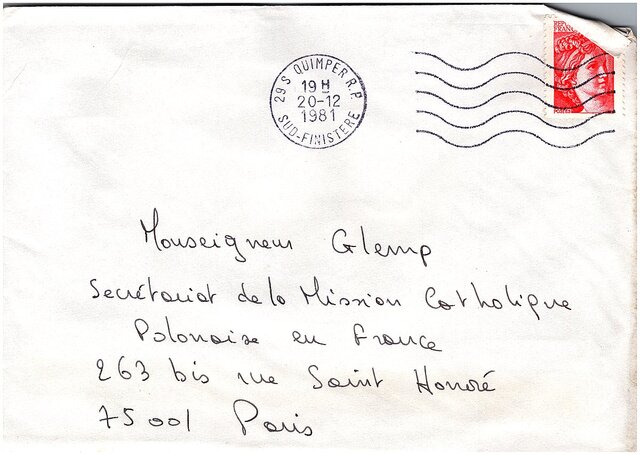 29 S QUIMPER R.P.
19 H
20-12
1981
SUD-FINISTERE
Monseigneur Glemp
Secrétariat de la Mission Catholique
Polonaise en France
263 bis rue Saint Honoré
75001 Paris